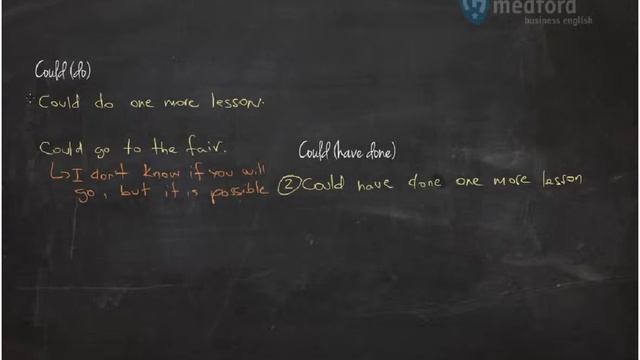 medford
business english
Could (do)
Could do one more lesson.
Could go to the fair.
↳ I don't know if you will
go, but it is possible
Could (have done)
② Could have done one more lesson